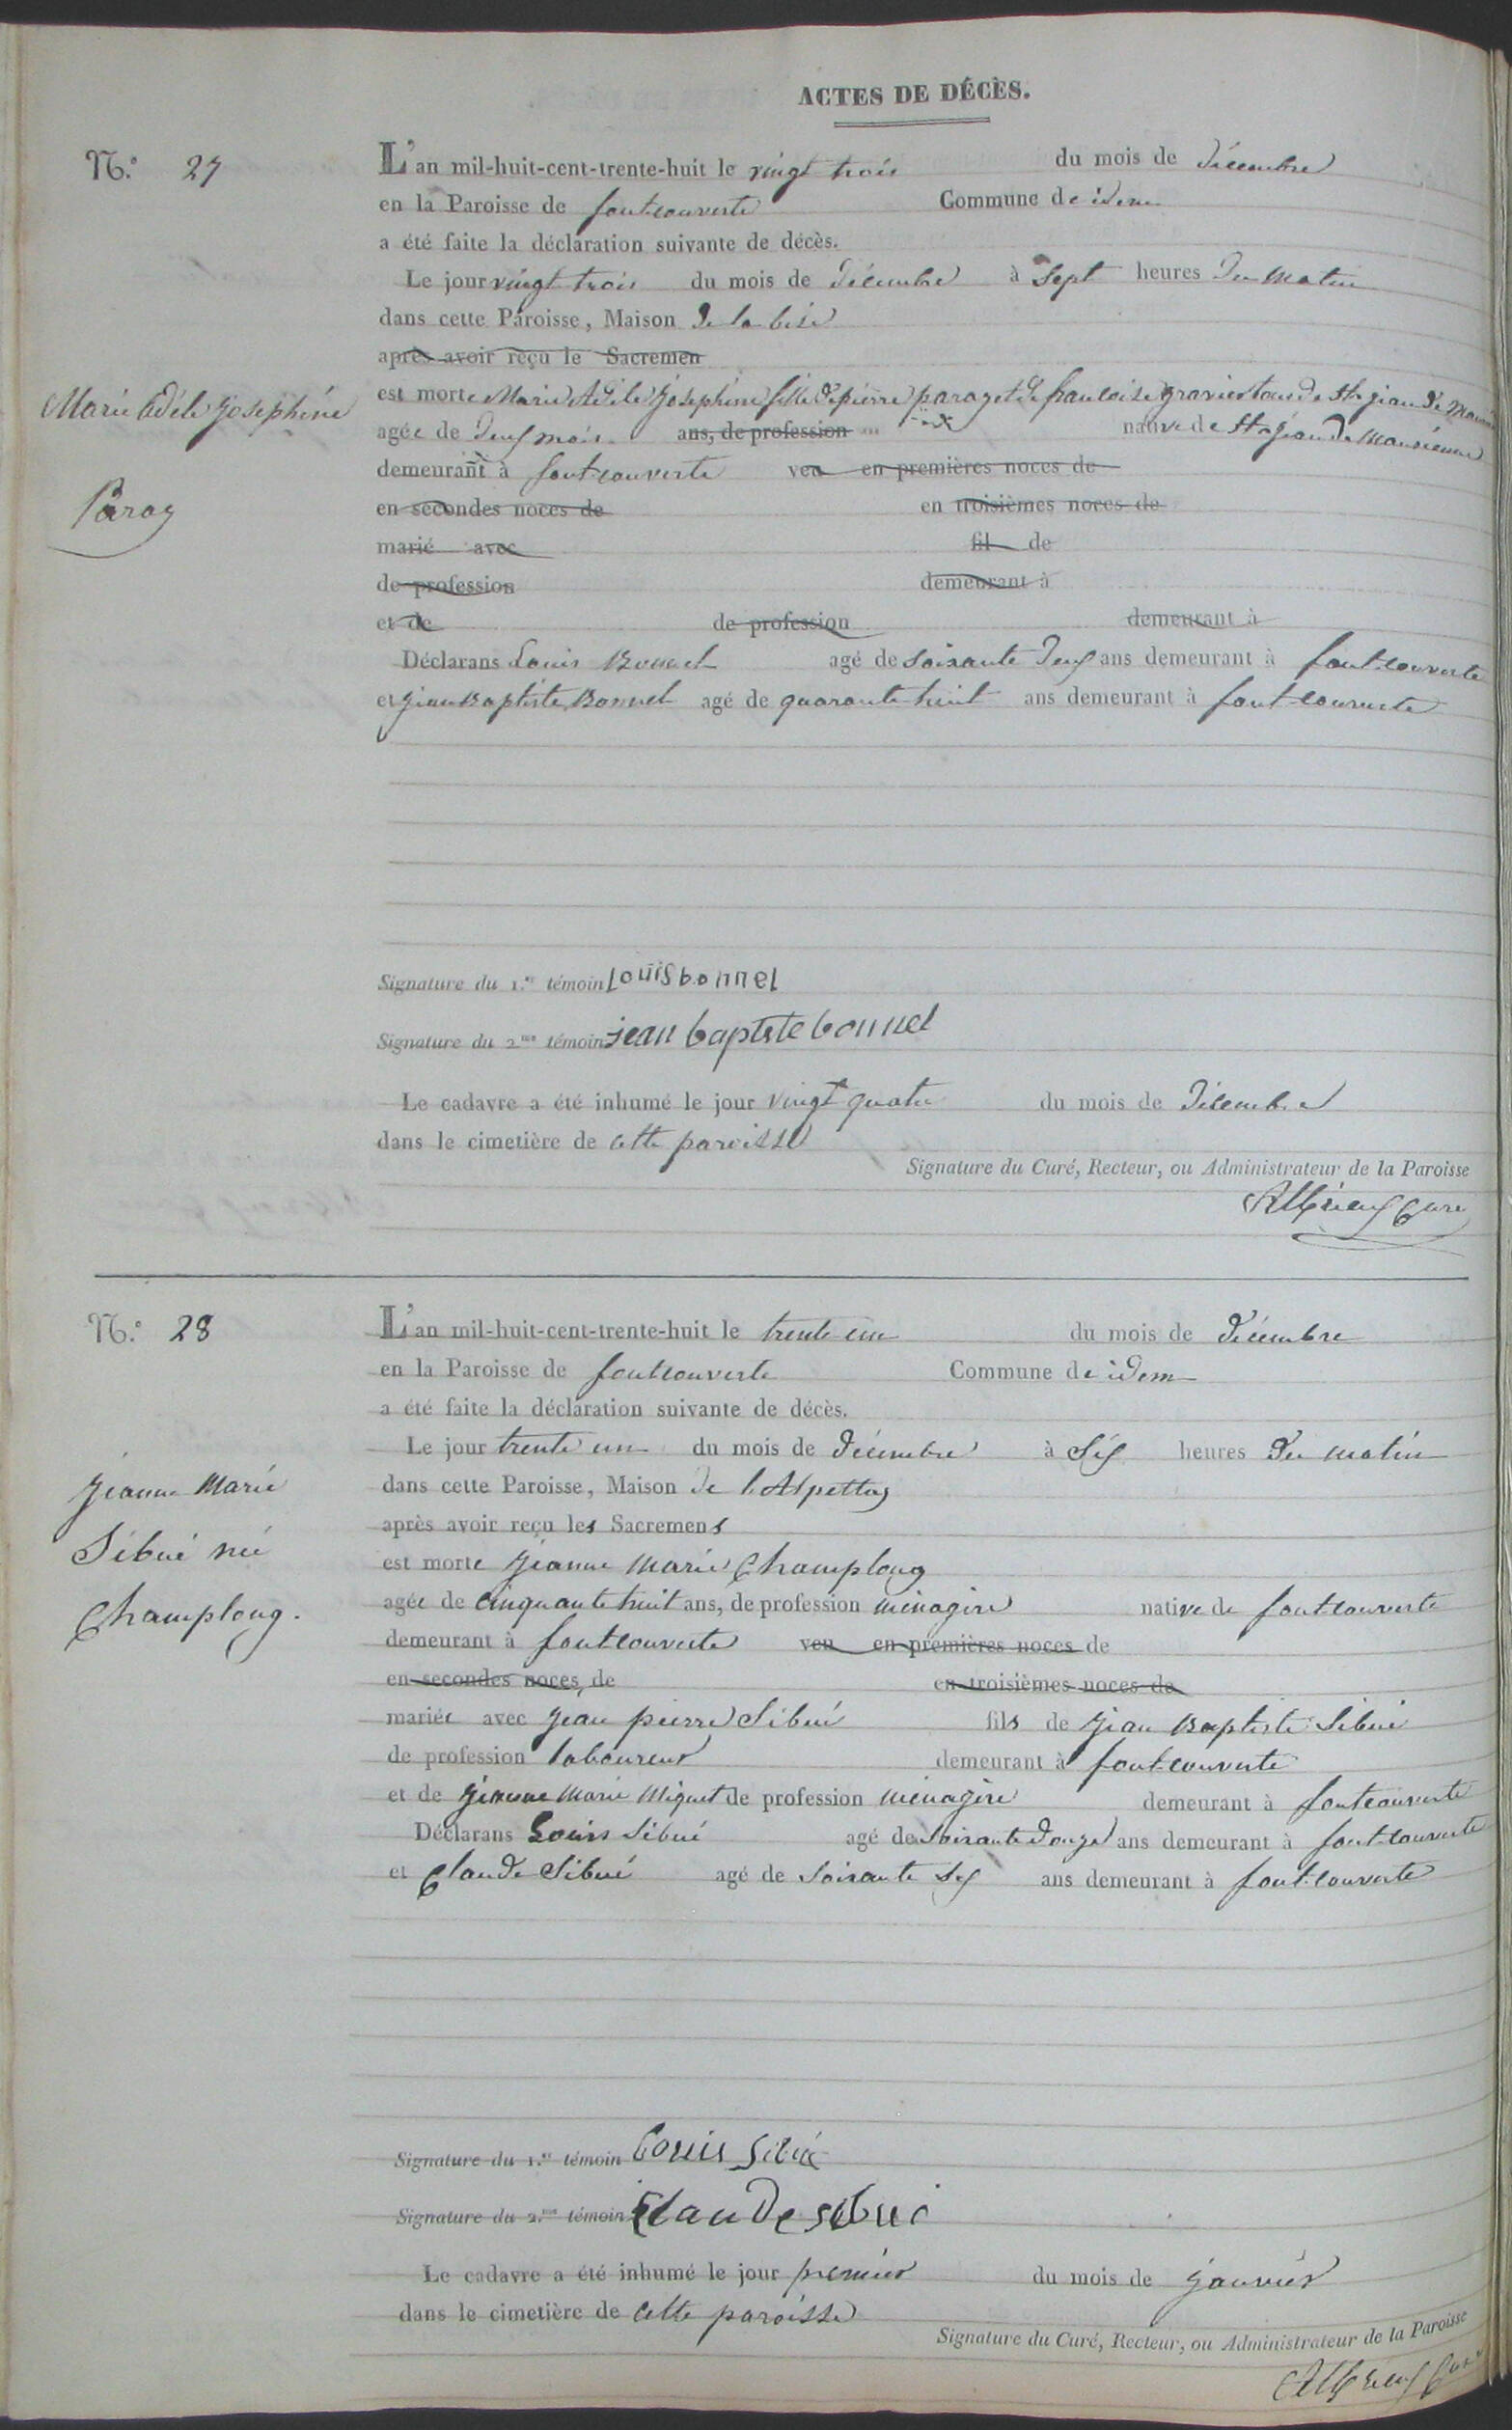 ACTES DE DÉCÈS.
N.º 27
L'an mil-huit-cent-trente-huit le vingt trois du mois de décembre
en la Paroisse de fontcouverte Commune de idem
a été faite la déclaration suivante de décès.
Le jour vingt trois du mois de décembre à sept heures du matin
dans cette Paroisse, Maison de la bise
après avoir reçu le Sacremen
Marie Adéle Josephine
est morte Marie Adéle Josephine fille de pierre paraz et de francoise gravier tous de St jean de
agée de deux mois ans, de profession native de St jean de Maurienne
demeurant à fontcouverte veu en premières noces de
Paraz
en secondes noces de en troisièmes noces de
marié avec fil de
de profession demeurant à
et de de profession demeurant à
Déclarans Louis Bonnel agé de soixante deux ans demeurant à fontcouverte
et jean Baptiste Bonnel agé de quarante huit ans demeurant à fontcouverte
Signature du 1.er témoin Louis bonnel
Signature du 2.me témoin jean baptiste bonnel
Le cadavre a été inhumé le jour vingt quatre du mois de décembre
dans le cimetière de cette paroisse
Signature du Curé, Recteur, ou Administrateur de la Paroisse
Curé
N.º 28
L'an mil-huit-cent-trente-huit le trente un du mois de décembre
en la Paroisse de fontcouverte Commune de idem
a été faite la déclaration suivante de décès.
Le jour trente un du mois de décembre à six heures du matin
jeanne Marie
dans cette Paroisse, Maison de l'Alpettaz
après avoir reçu les Sacremens
Sibué née
est morte jeanne Marie Champlong
Champlong.
agée de cinquante huit ans, de profession ménagère native de fontcouverte
demeurant à fontcouverte veu en premières noces de
en secondes noces de en troisièmes noces de
mariée avec jean pierre Sibué fils de jean Baptiste Sibué
de profession laboureur demeurant à fontcouverte
et de jeanne Marie Miquet de profession ménagère demeurant à fontcouverte
Déclarans Louis Sibué agé de soixante douze ans demeurant à fontcouverte
et Claude Sibué agé de soixante six ans demeurant à fontcouverte
Signature du 1.er témoin Louis Sibué
Signature du 2.me témoin Claude sibué
Le cadavre a été inhumé le jour premier du mois de janvier
dans le cimetière de cette paroisse
Signature du Curé, Recteur, ou Administrateur de la Paroisse